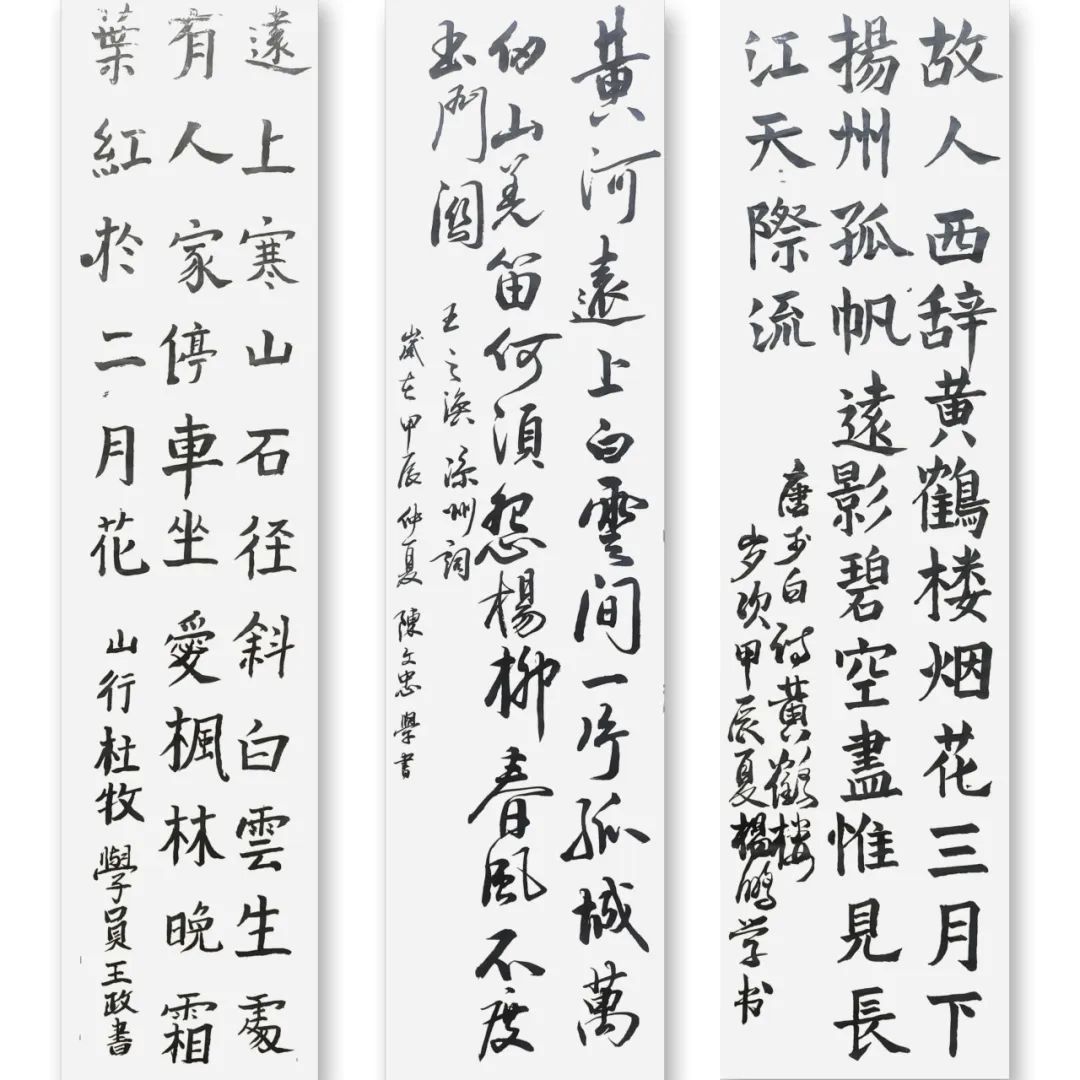 故人西辞黄鶴楼烟花三月下
揚州孤帆遠影碧空盡惟見長
江天際流
唐李白诗黄鶴楼
岁次甲辰夏楊鹏学书
黄河遠上白雲间一片孤城萬
仞山羌笛何須怨楊柳春風不度
玉門関
王之渙涼州詞
歲在甲辰仲夏陳文忠學書
遠上寒山石径斜白雲生處
有人家停車坐愛楓林晚霜
葉紅於二月花 山行杜牧 學員王政書